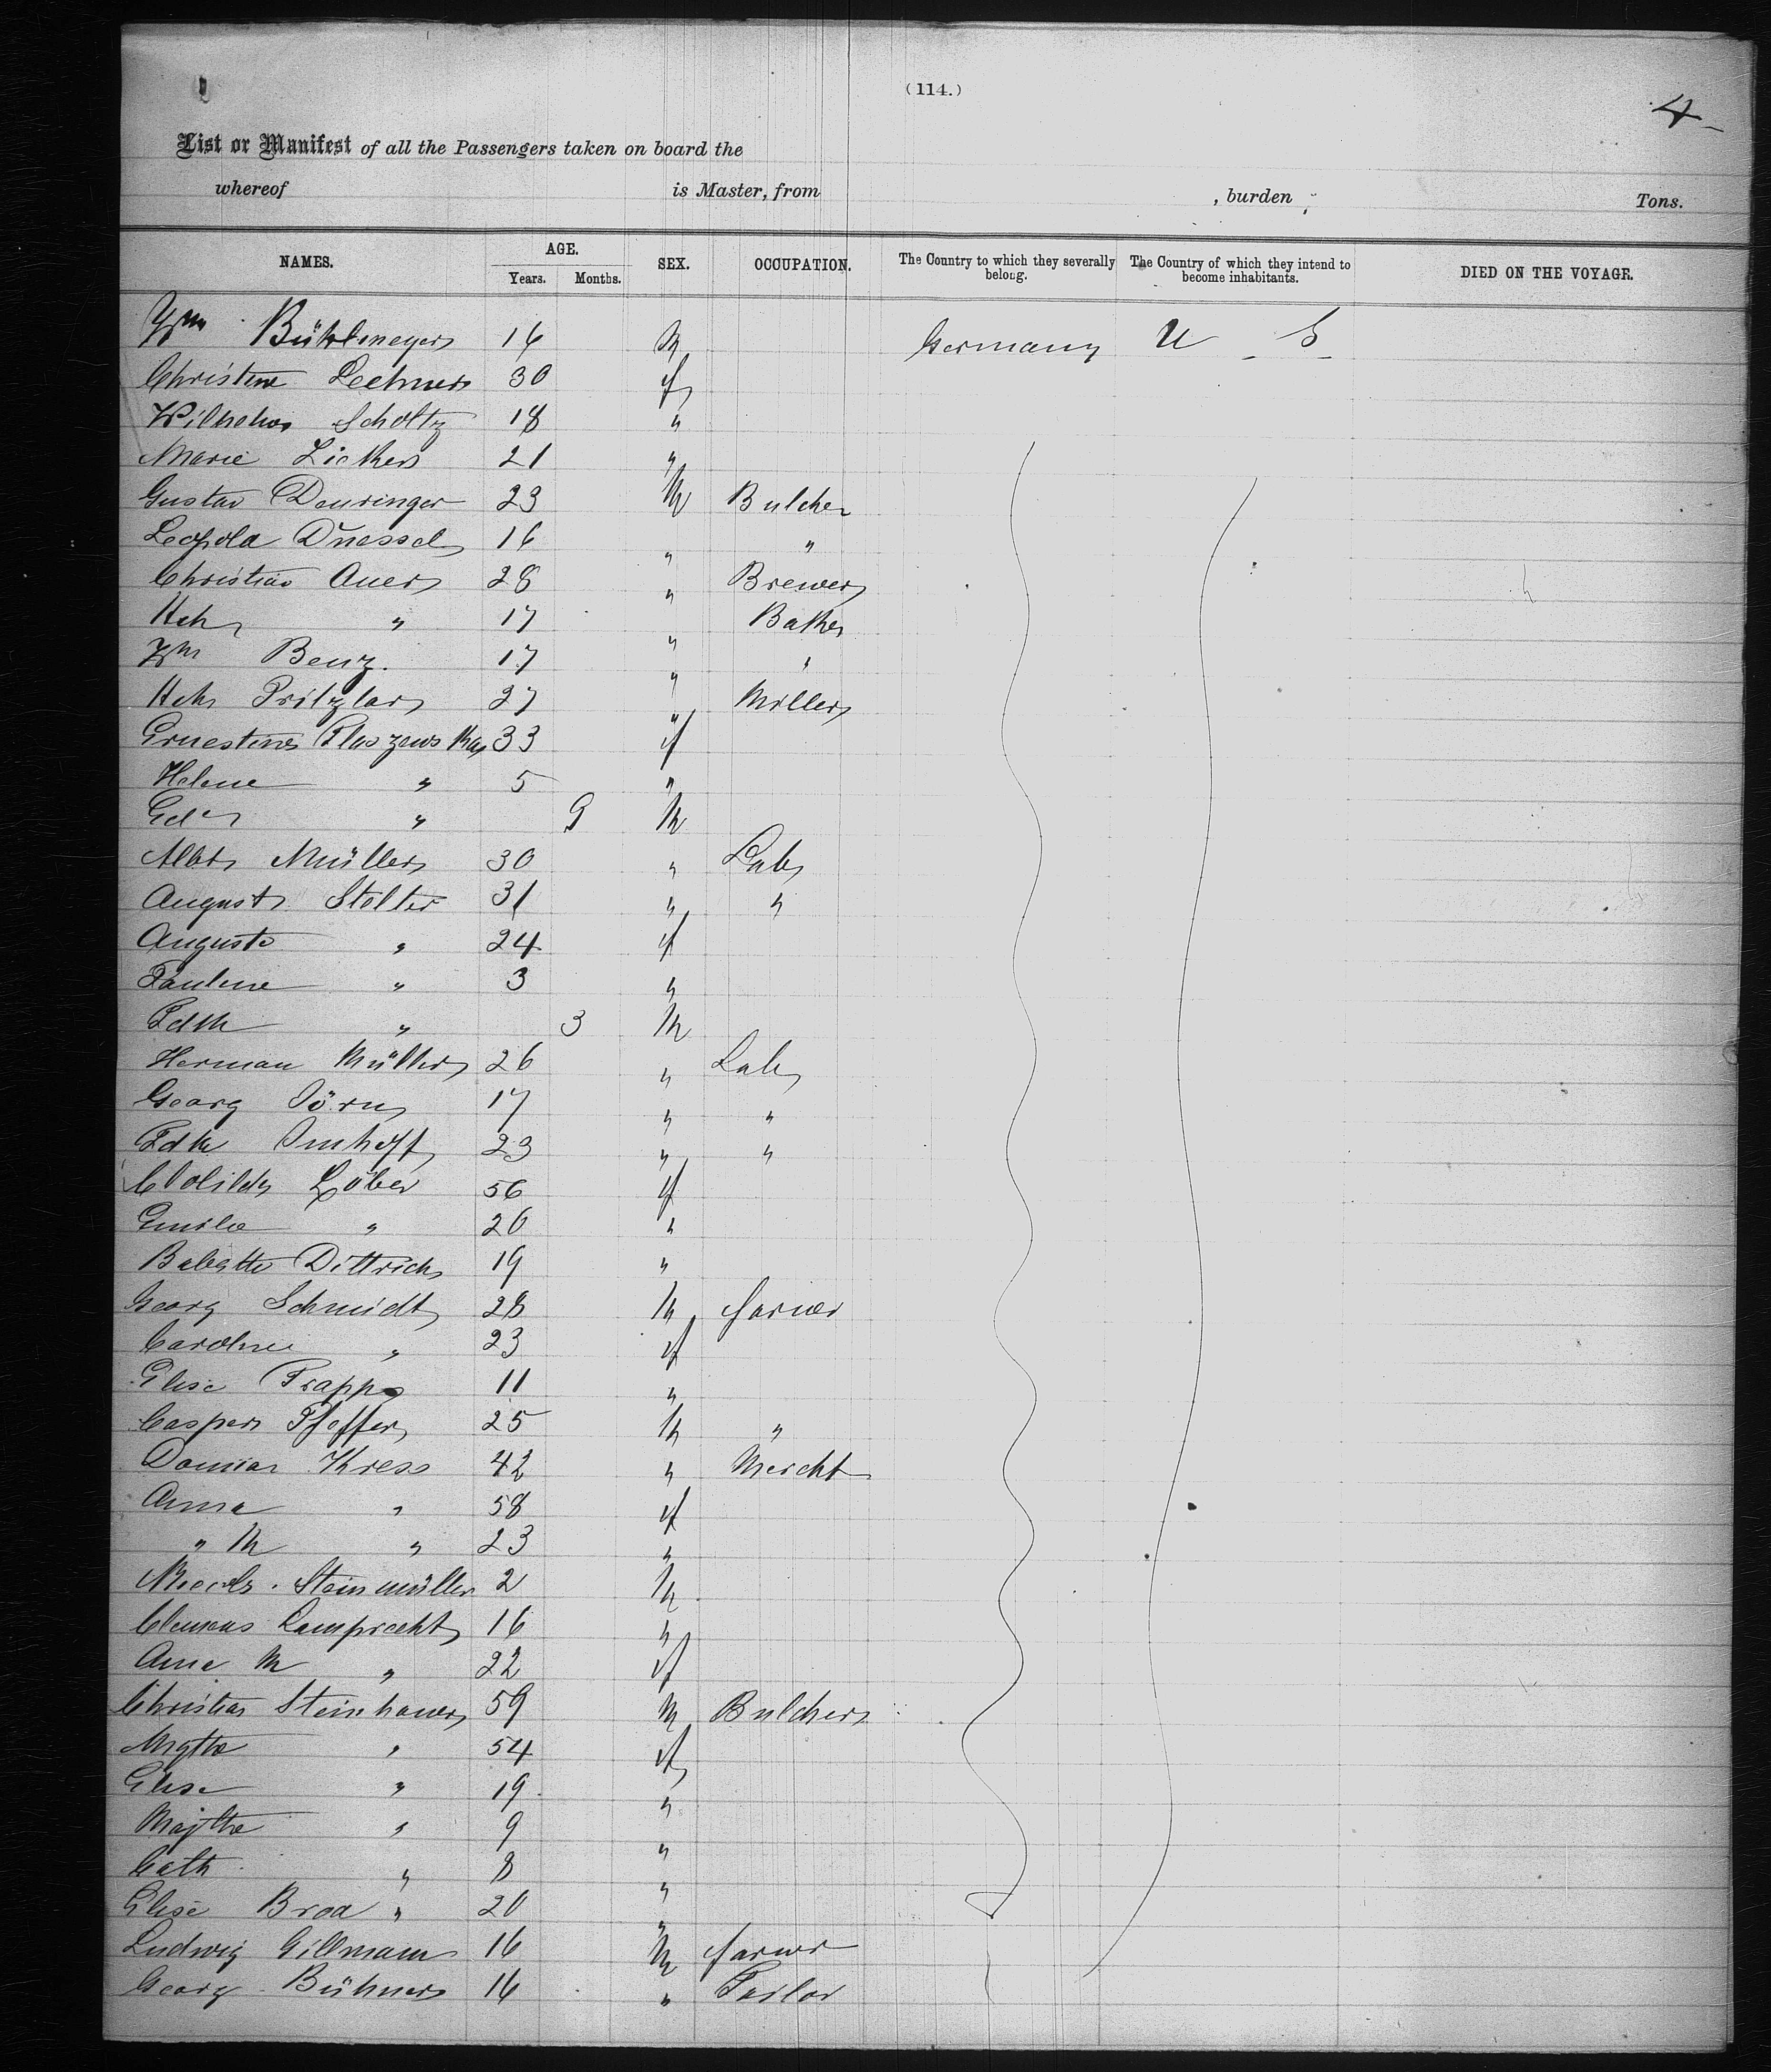 (114.)
4
List or Manifest of all the Passengers taken on board the
whereof is Master, from , burden , Tons.
NAMES. AGE. SEX. OCCUPATION. The Country to which they severally belong. The Country of which they intend to become inhabitants. DIED ON THE VOYAGE.
Years. Months.
Wm 16 M Germany U S
Christine Lechner 30 f
Scholtz 18 "
Marie 21 "
Gustav Deuringer 23 M Butcher
Leopold 16 " "
Christian Auer 28 " Brewer
Hch " 17 " Baker
Wm Benz. 17 " "
Hch Pritzlar 27 " Miller
Ernestine 33 f
Helene " 5 "
" 9 M
Albt Müller 30 " Lab
August Stolter 31 " "
Auguste " 24 f
Pauline " 3 "
Fdk " 3 M
Herman Müller 26 " Lab
Georg 17 " "
Fdk Imhoff 23 " "
Löber 56 f
Emilie " 20 "
Babette Dittrich 19 "
Georg Schmidt 28 M farmer
Caroline " 23 f
Elise Trapp 11 "
Casper Pfeffer 25 M "
Kress 42 " Mercht
Anna " 58 f
" M " 23 "
Steinmüller 2 M
Clemens Lamprecht 16 "
Anna M " 22 f
Christian Steinhauer 59 M Butcher
Mgthe " 54 f
Elise " 19 "
Magthe " 9 "
Cath " 8 "
Elise Broa " 20 "
Ludwig Gillmann 16 M farmer
Georg Bühner 16 " Tailor